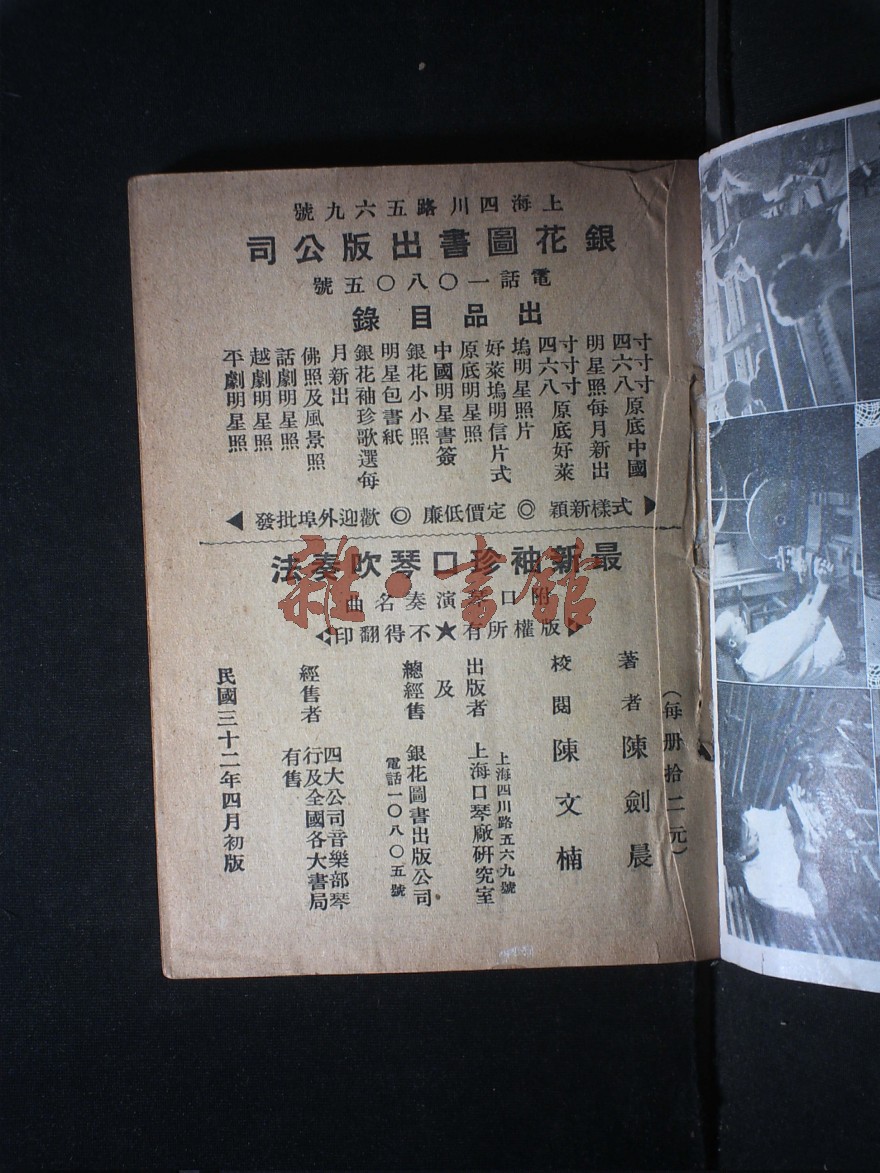 上海四川路五六九號
銀花圖書出版公司
電話一〇八〇五號
出品目錄
四寸六寸八寸原底中國
明星照每月新出
四寸六寸八寸原底好萊
塢明星照片
好萊塢明信片式
原底明星照
中國明星書簽
銀花小小照
明星包書紙
銀花袖珍歌選每
月新出
佛照及風景照
話劇明星照
越劇明星照
平劇明星照
式樣新穎◎定價低廉◎歡迎外埠批發
最新袖珍口琴吹奏法
附口琴演奏名曲
版權所有★不得翻印
(每册拾二元)
著者 陳劍晨
校閱 陳文楠
上海四川路五六九號
出版者 上海口琴廠研究室
及
總經售 銀花圖書出版公司
電話一〇八〇五號
經售者 四大公司音樂部琴
行及全國各大書局
有售
民國三十二年四月初版
雜·書館